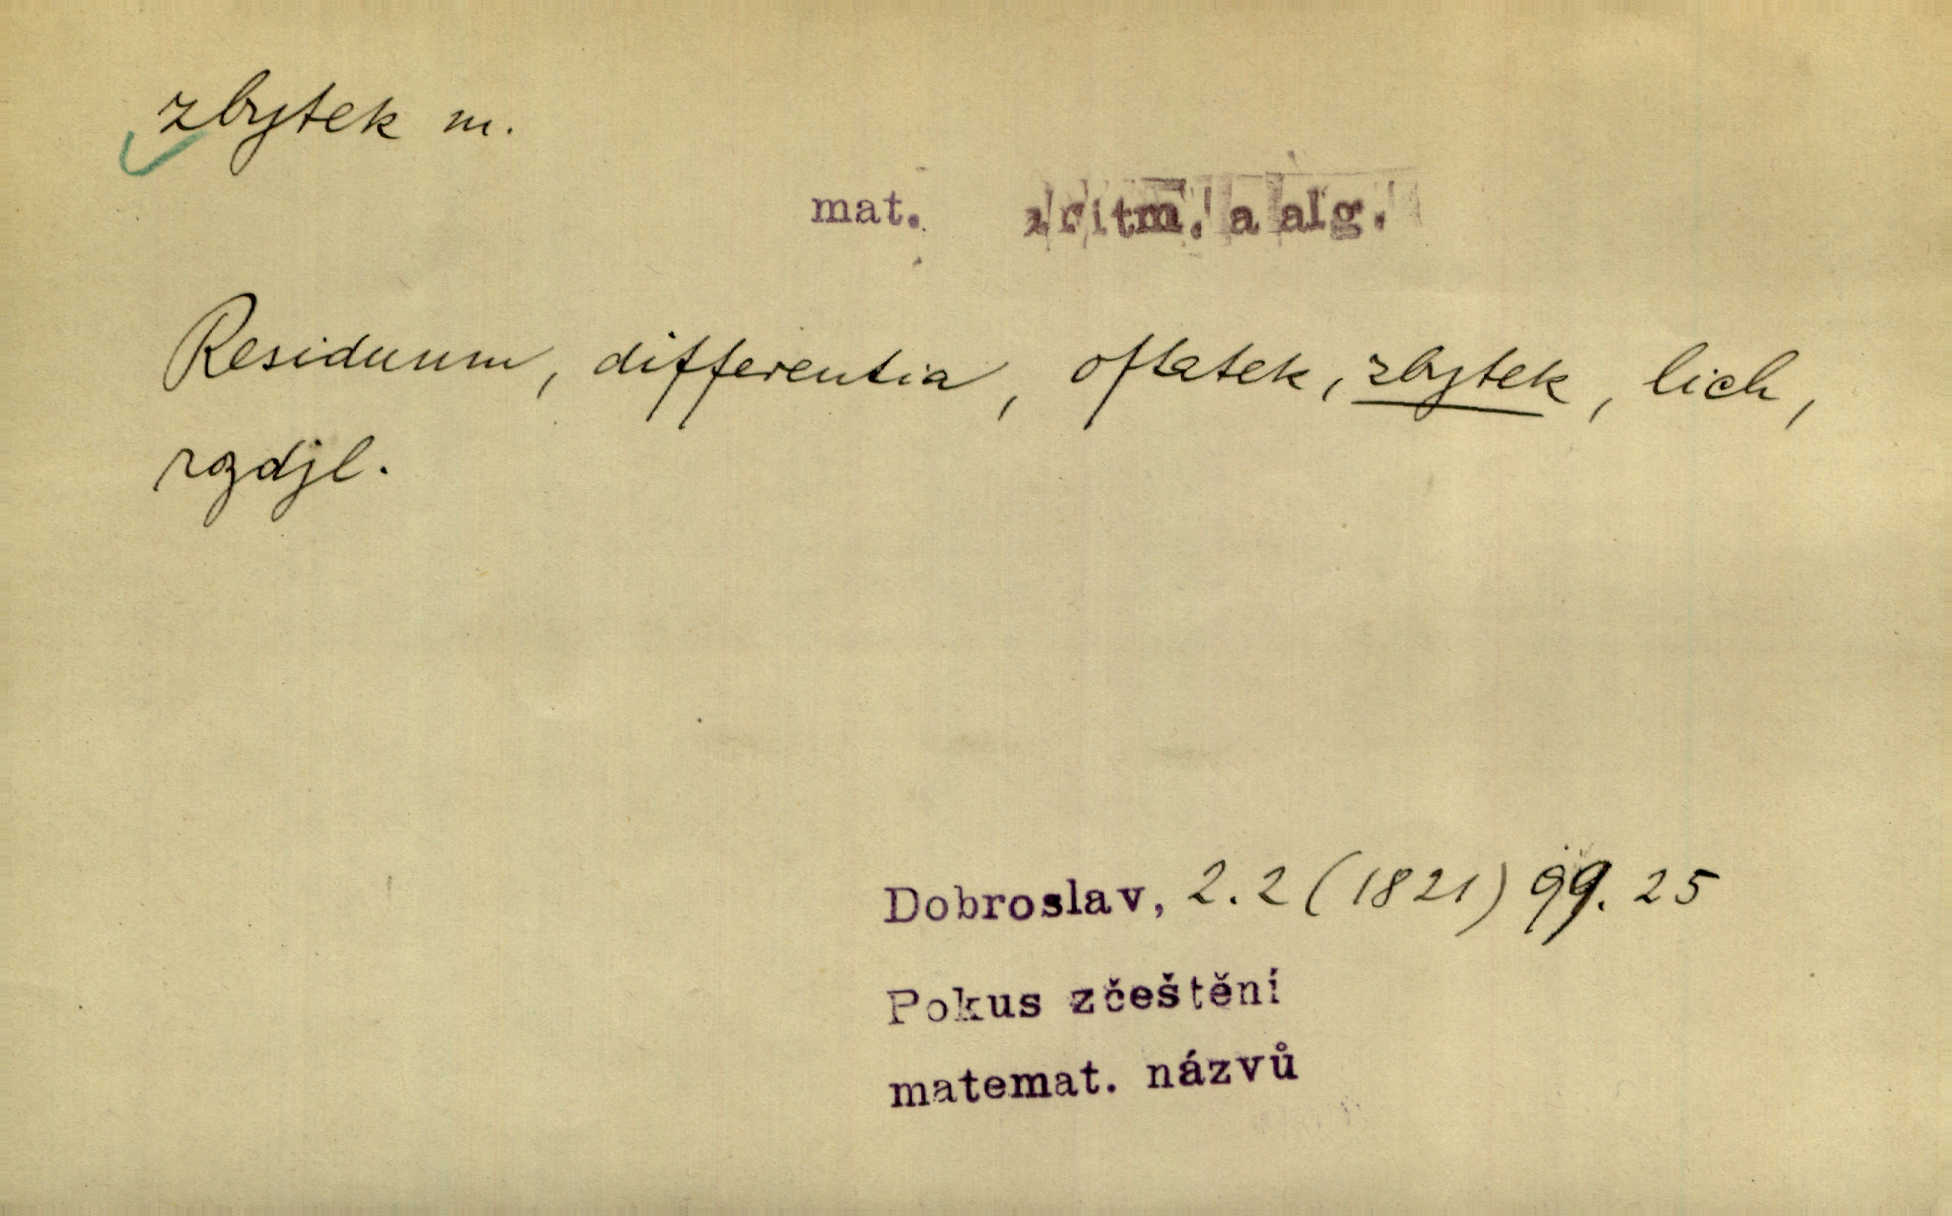 zbytek m.
mat. aritm. a alg.
Residuum, differentia, oſtatek, zbytek, lich,
rozdjl.
Dobroslav, 2.2 (1821) 99. 25
Pokus zčeštění
matemat. názvů